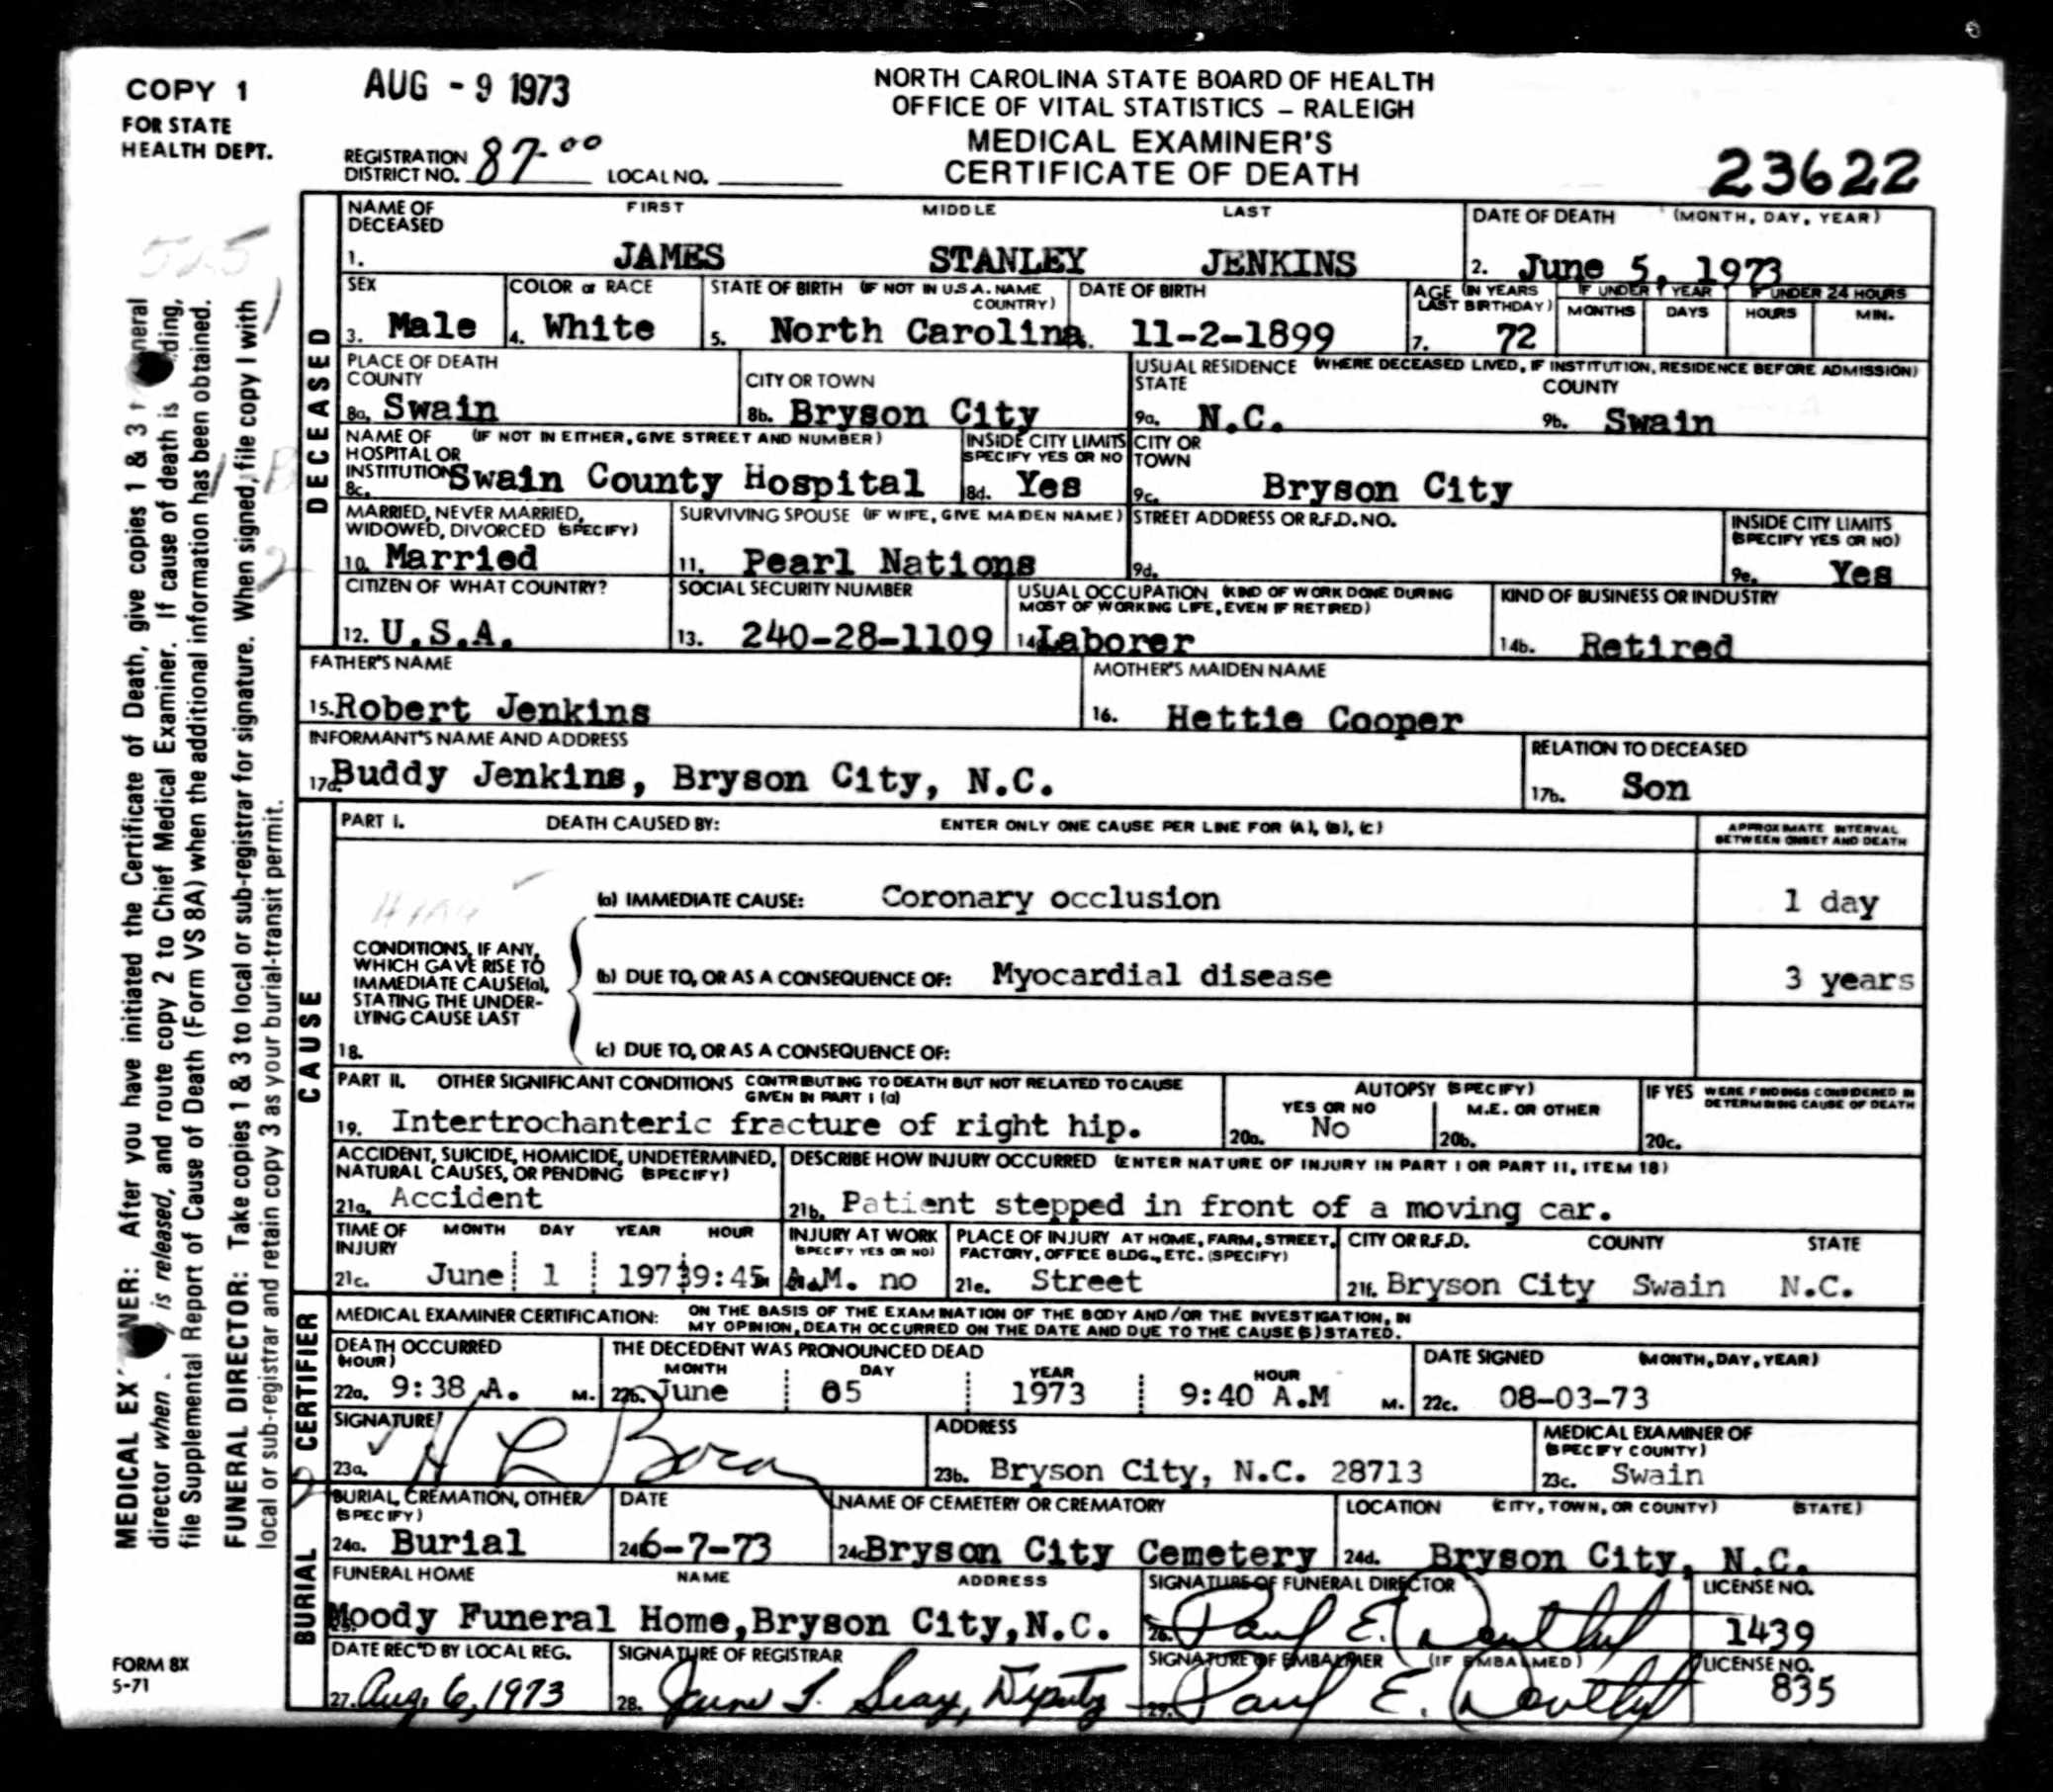 COPY 1
FOR STATE
HEALTH DEPT.
AUG - 9 1973
NORTH CAROLINA STATE BOARD OF HEALTH
OFFICE OF VITAL STATISTICS – RALEIGH
MEDICAL EXAMINER'S
CERTIFICATE OF DEATH
REGISTRATION DISTRICT NO. 87-00 LOCAL NO.
23622
DECEASED
NAME OF DECEASED FIRST MIDDLE LAST
1. JAMES STANLEY JENKINS
DATE OF DEATH (MONTH, DAY, YEAR)
2. June 5, 1973
SEX
3. Male
COLOR or RACE
4. White
STATE OF BIRTH (IF NOT IN U.S.A. NAME COUNTRY)
5. North Carolina
DATE OF BIRTH
11-2-1899
AGE (IN YEARS LAST BIRTHDAY)
7. 72
IF UNDER 1 YEAR
MONTHS DAYS
IF UNDER 24 HOURS
HOURS MIN.
PLACE OF DEATH
COUNTY
8a. Swain
CITY OR TOWN
8b. Bryson City
USUAL RESIDENCE (WHERE DECEASED LIVED, IF INSTITUTION, RESIDENCE BEFORE ADMISSION)
STATE
9a. N.C.
COUNTY
9b. Swain
NAME OF HOSPITAL OR INSTITUTION (IF NOT IN EITHER, GIVE STREET AND NUMBER)
8c. Swain County Hospital
INSIDE CITY LIMITS SPECIFY YES OR NO
8d. Yes
CITY OR TOWN
9c. Bryson City
MARRIED, NEVER MARRIED, WIDOWED, DIVORCED (SPECIFY)
10. Married
SURVIVING SPOUSE (IF WIFE, GIVE MAIDEN NAME)
11. Pearl Nations
STREET ADDRESS OR R.F.D. NO.
9d.
INSIDE CITY LIMITS (SPECIFY YES OR NO)
9e. Yes
CITIZEN OF WHAT COUNTRY?
12. U.S.A.
SOCIAL SECURITY NUMBER
13. 240-28-1109
USUAL OCCUPATION (KIND OF WORK DONE DURING MOST OF WORKING LIFE, EVEN IF RETIRED)
14 Laborer
KIND OF BUSINESS OR INDUSTRY
14b. Retired
FATHER'S NAME
15. Robert Jenkins
MOTHER'S MAIDEN NAME
16. Hettie Cooper
INFORMANT'S NAME AND ADDRESS
17a. Buddy Jenkins, Bryson City, N.C.
RELATION TO DECEASED
17b. Son
CAUSE
PART I. DEATH CAUSED BY: ENTER ONLY ONE CAUSE PER LINE FOR (A), (B), (C)
APPROXIMATE INTERVAL BETWEEN ONSET AND DEATH
(a) IMMEDIATE CAUSE: Coronary occlusion 1 day
CONDITIONS, IF ANY, WHICH GAVE RISE TO IMMEDIATE CAUSE(a), STATING THE UNDERLYING CAUSE LAST
(b) DUE TO, OR AS A CONSEQUENCE OF: Myocardial disease 3 years
18.
(c) DUE TO, OR AS A CONSEQUENCE OF:
PART II. OTHER SIGNIFICANT CONDITIONS CONTRIBUTING TO DEATH BUT NOT RELATED TO CAUSE GIVEN IN PART I (a)
19. Intertrochanteric fracture of right hip.
AUTOPSY (SPECIFY)
YES OR NO
20a. No
M.E. OR OTHER
20b.
IF YES WERE FINDINGS CONSIDERED IN DETERMINING CAUSE OF DEATH
20c.
ACCIDENT, SUICIDE, HOMICIDE, UNDETERMINED, NATURAL CAUSES, OR PENDING (SPECIFY)
21a. Accident
DESCRIBE HOW INJURY OCCURRED (ENTER NATURE OF INJURY IN PART I OR PART II, ITEM 18)
21b. Patient stepped in front of a moving car.
TIME OF INJURY MONTH DAY YEAR HOUR
21c. June 1 1973 9:45 A.M.
INJURY AT WORK (SPECIFY YES OR NO)
no
PLACE OF INJURY AT HOME, FARM, STREET, FACTORY, OFFICE BLDG., ETC. (SPECIFY)
21e. Street
CITY OR R.F.D. COUNTY STATE
21f. Bryson City Swain N.C.
CERTIFIER
MEDICAL EXAMINER CERTIFICATION: ON THE BASIS OF THE EXAMINATION OF THE BODY AND/OR THE INVESTIGATION, IN MY OPINION, DEATH OCCURRED ON THE DATE AND DUE TO THE CAUSE(S) STATED.
DEATH OCCURRED (HOUR)
22a. 9:38 A. M.
THE DECEDENT WAS PRONOUNCED DEAD
MONTH DAY YEAR HOUR
22b. June 05 1973 9:40 A.M M.
DATE SIGNED (MONTH, DAY, YEAR)
22c. 08-03-73
SIGNATURE
23a. H L
ADDRESS
23b. Bryson City, N.C. 28713
MEDICAL EXAMINER OF (SPECIFY COUNTY)
23c. Swain
BURIAL
BURIAL, CREMATION, OTHER (SPECIFY)
24a. Burial
DATE
24b 6-7-73
NAME OF CEMETERY OR CREMATORY
24c Bryson City Cemetery
LOCATION (CITY, TOWN, OR COUNTY) (STATE)
24d. Bryson City, N.C.
FUNERAL HOME NAME ADDRESS
Moody Funeral Home, Bryson City, N.C.
SIGNATURE OF FUNERAL DIRECTOR
26. Paul E.
LICENSE NO.
1439
DATE REC'D BY LOCAL REG.
27. Aug. 6, 1973
SIGNATURE OF REGISTRAR
28. Seay, Deputy
SIGNATURE OF EMBALMER (IF EMBALMED)
29. Paul E.
LICENSE NO.
835
FORM 8X
5-71
MEDICAL EX NER: After you have initiated the Certificate of Death, give copies 1 & 3 neral
director when is released, and route copy 2 to Chief Medical Examiner. If cause of death is ding,
file Supplemental Report of Cause of Death (Form VS 8A) when the additional information has been obtained.
FUNERAL DIRECTOR: Take copies 1 & 3 to local or sub-registrar for signature. When signed, file copy 1 with
local or sub-registrar and retain copy 3 as your burial-transit permit.